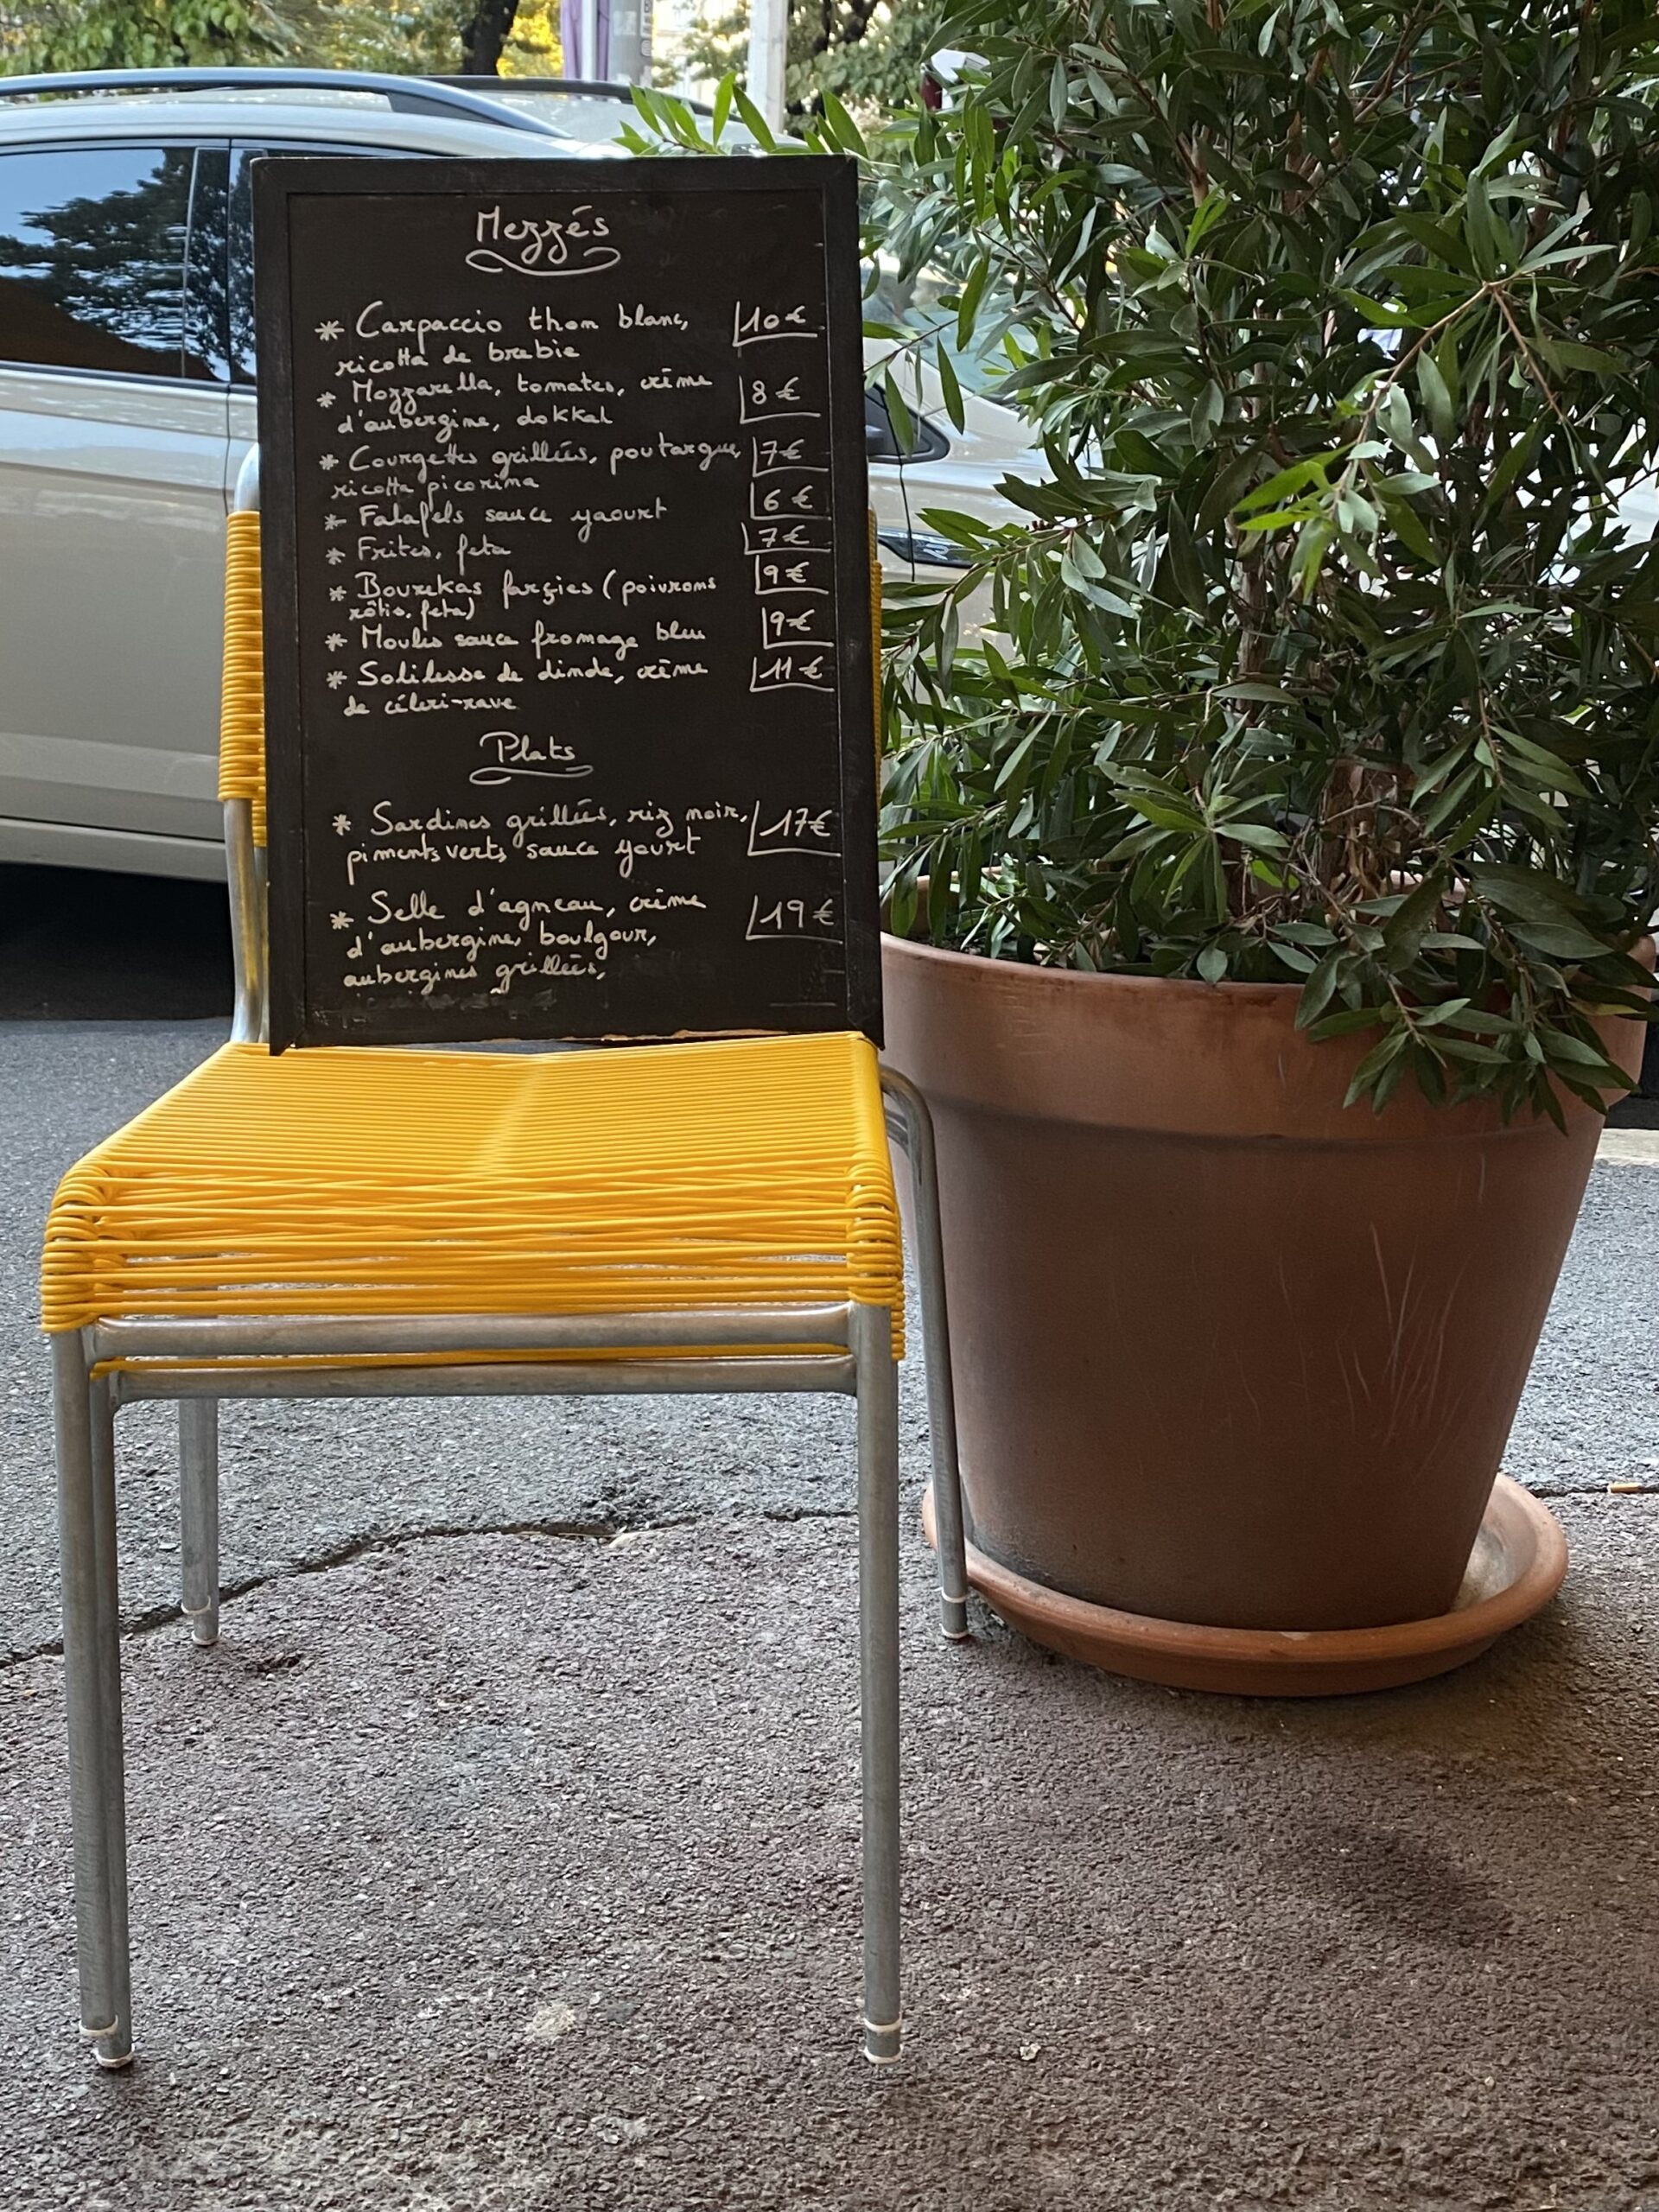 Mezzés
* Carpaccio thon blanc, 10€
ricotta de brebie
* Mozzarella, tomates, crème 8€
d'aubergine, dokkal
* Courgettes grillées, poutargue, 7€
ricotta picorina
* Falafels sauce yaourt 6€
* Frites, feta 7€
* Bourekas farçies (poivrons 9€
rôtis, feta)
* Moules sauce fromage bleu 9€
* Solilesse de dinde, crème 11€
de céleri-rave
Plats
* Sardines grillées, riz noir, 17€
piments verts, sauce yourt
* Selle d'agneau, crème 19€
d'aubergine, boulgour,
aubergines grillées,